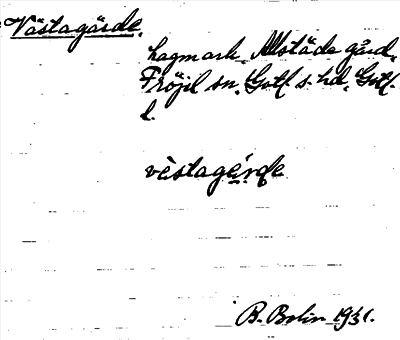 Västagärde.
hagmark, Allstäde gård,
Fröjil sn. Gotl. s. hd. Gotl.
l.
vèstagẹ́rde
B. Bolin 1931.